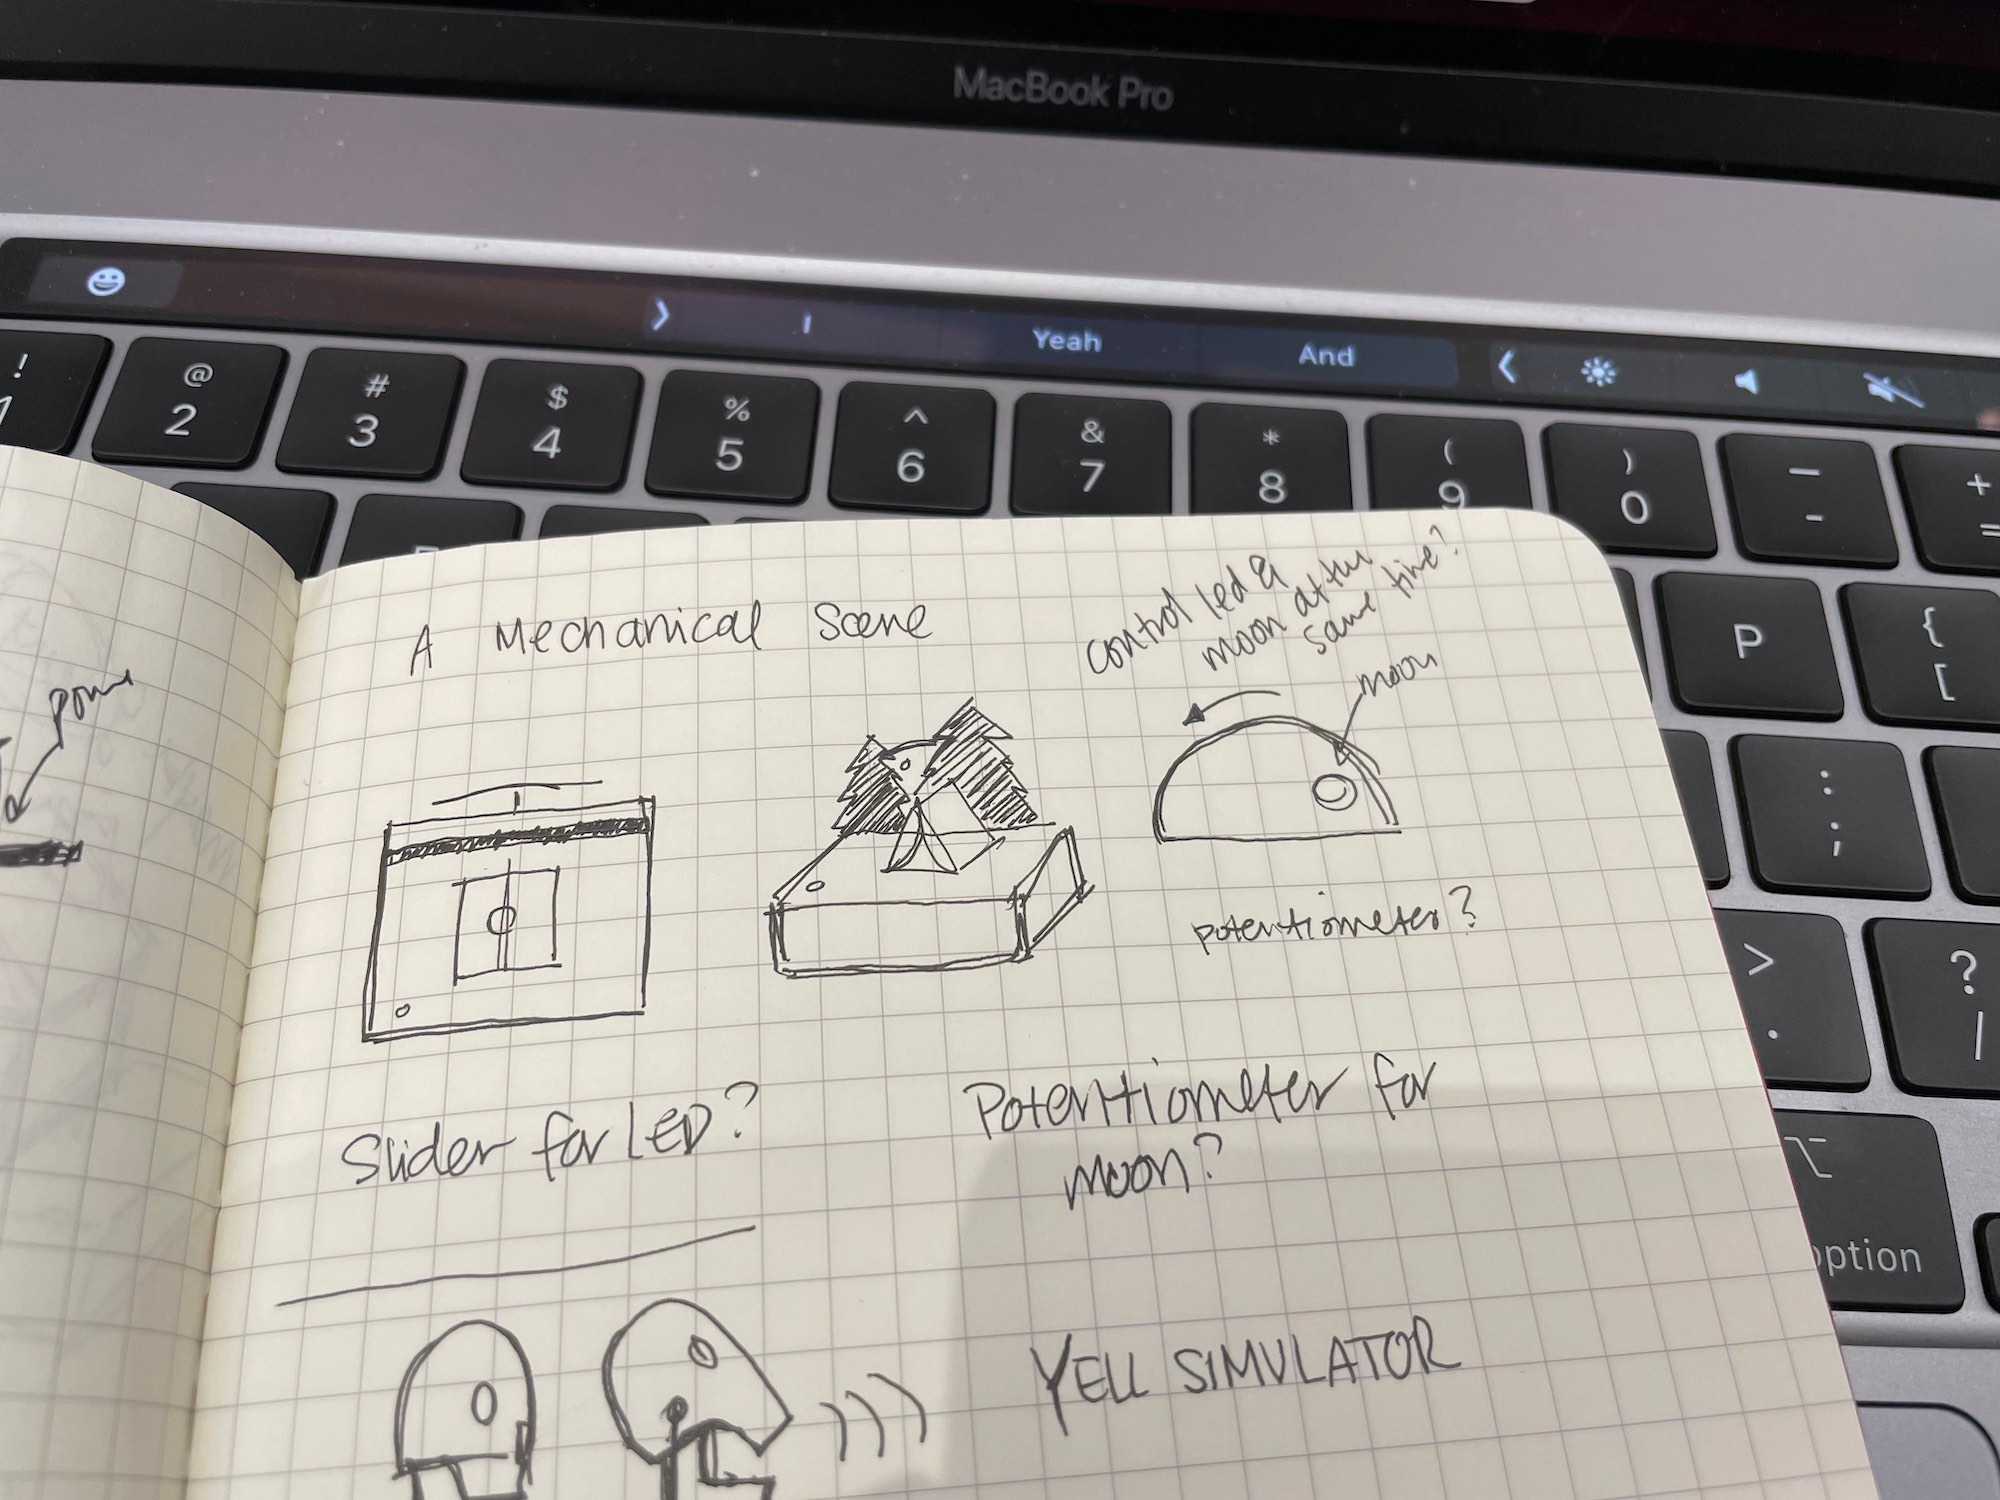 MacBook Pro
Yeah
And
!
1
@
2
#
3
$
4
%
5
^
6
&
7
*
8
(
9
)
0
_
-
+
=
P
{
[
:
;
>
.
?
/
option
A Mechanical Scene
control led &
moon at the
same time?
moon
potentiometer?
Slider for LED?
Potentiometer for
moon?
YELL SIMULATOR